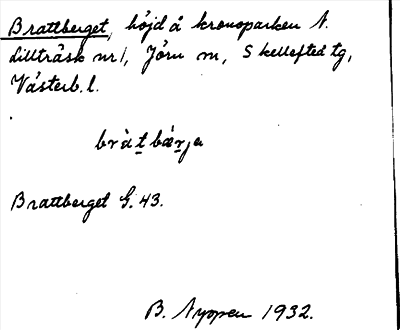 Brattberget, höjd å kronoparken N.
Lillträsk nr 1, Jörn sn, Skellefteå tg,
Västerb. l.
bràt̲bær̲ja
Brattberget G. 43.
B. Nyppen 1932.